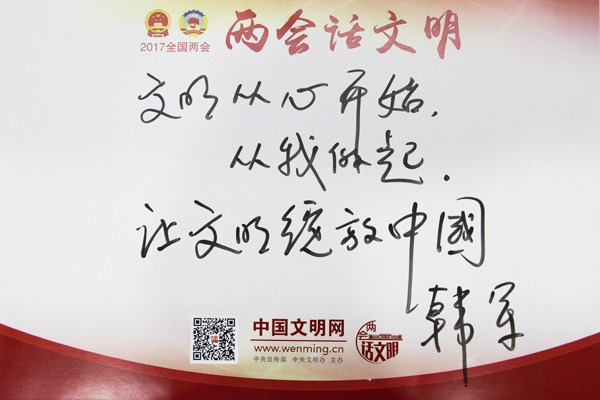 2017全国两会
两会话文明
文明从心开始,
从我做起.
让文明绕放中國
韩军
中国文明网
www.wenming.cn
中央宣传部 中央文明办 主办
两会
话文明